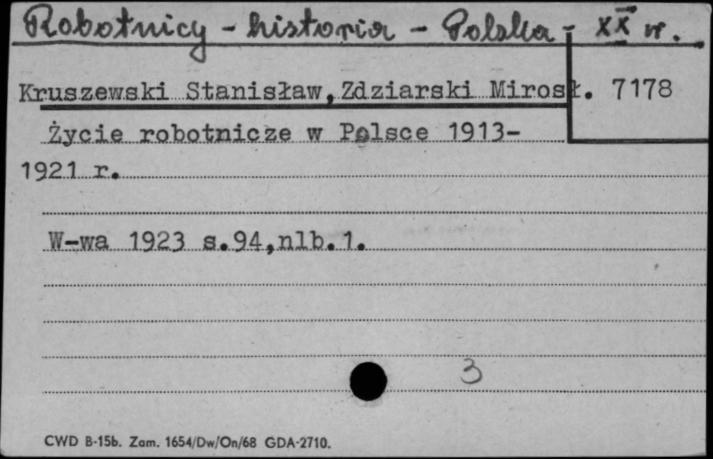 Robotnicy - historia - Polska - XX w.
Kruszewski Stanisław,Zdziarski Mirosł. 7178
Życie robotnicze w Polsce 1913-
1921 r.
W-wa 1923 s.94,nlb.1.
3
CWD B-15b. Zam. 1654/Dw/On/68 GDA-2710.